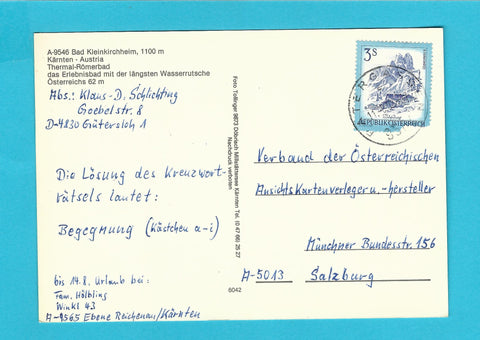 A-9546 Bad Kleinkirchheim, 1100 m
Kärnten - Austria
Thermal-Römerbad
das Erlebnisbad mit der längsten Wasserrutsche
Österreichs 62 m
Abs.: Klaus-D. Schlichting
Goebelstr. 8
D-4830 Gütersloh 1
Die Lösung des Kreuzwort-
rätsels lautet:
Begegnung (Kästchen a-i)
bis 14.8. Urlaub bei:
Fam. Hölbling
Winkl 43
A-9565 Ebene Reichenau/Kärnten
Foto Tollinger 9873 Döbriach Millstättersee Kärnten Tel. (0 42 46)
Nachdruck verboten
6042
3 S
REPUBLIK ÖSTERREICH
Verband der Österreichischen
Ansichtskartenverleger u. -hersteller
Münchner Bundesstr. 156
A-5013 Salzburg